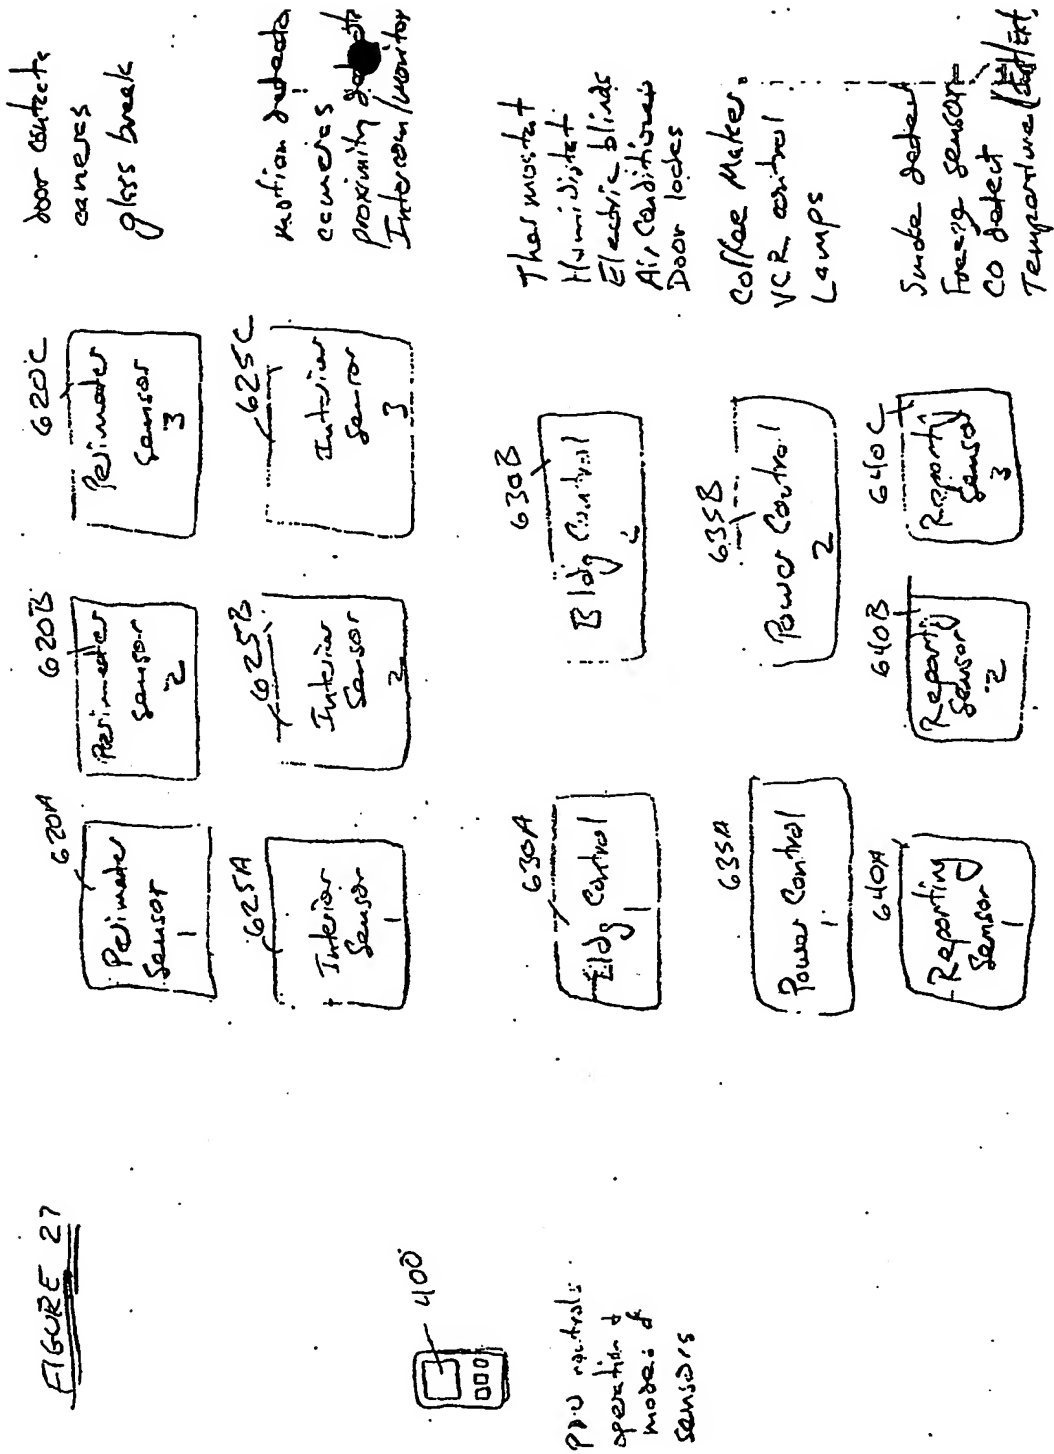 FIGURE 27
400
PDU controls
operation &
modes of
sensors
620A
Perimeter
Sensor
1
620B
Perimeter
Sensor
2
620C
Perimeter
Sensor
3
door contacts
cameras
glass break
625A
Interior
Sensor
1
625B
Interior
Sensor
2
625C
Interior
Sensor
3
motion detector
cameras
proximity
Intercom/monitor
630A
Bldg Control
1
630B
Bldg Control
2
Thermostat
Humidistat
Electric blinds
Air Conditioner
Door locks
635A
Power Control
1
635B
Power Control
2
Coffee Maker
VCR control
Lamps
640A
Reporting
Sensor
1
640B
Reporting
Sensor
2
640C
Reporting
Sensor
3
Smoke detect
Freeze sensor
CO detect
Temperature (Int/Ext)